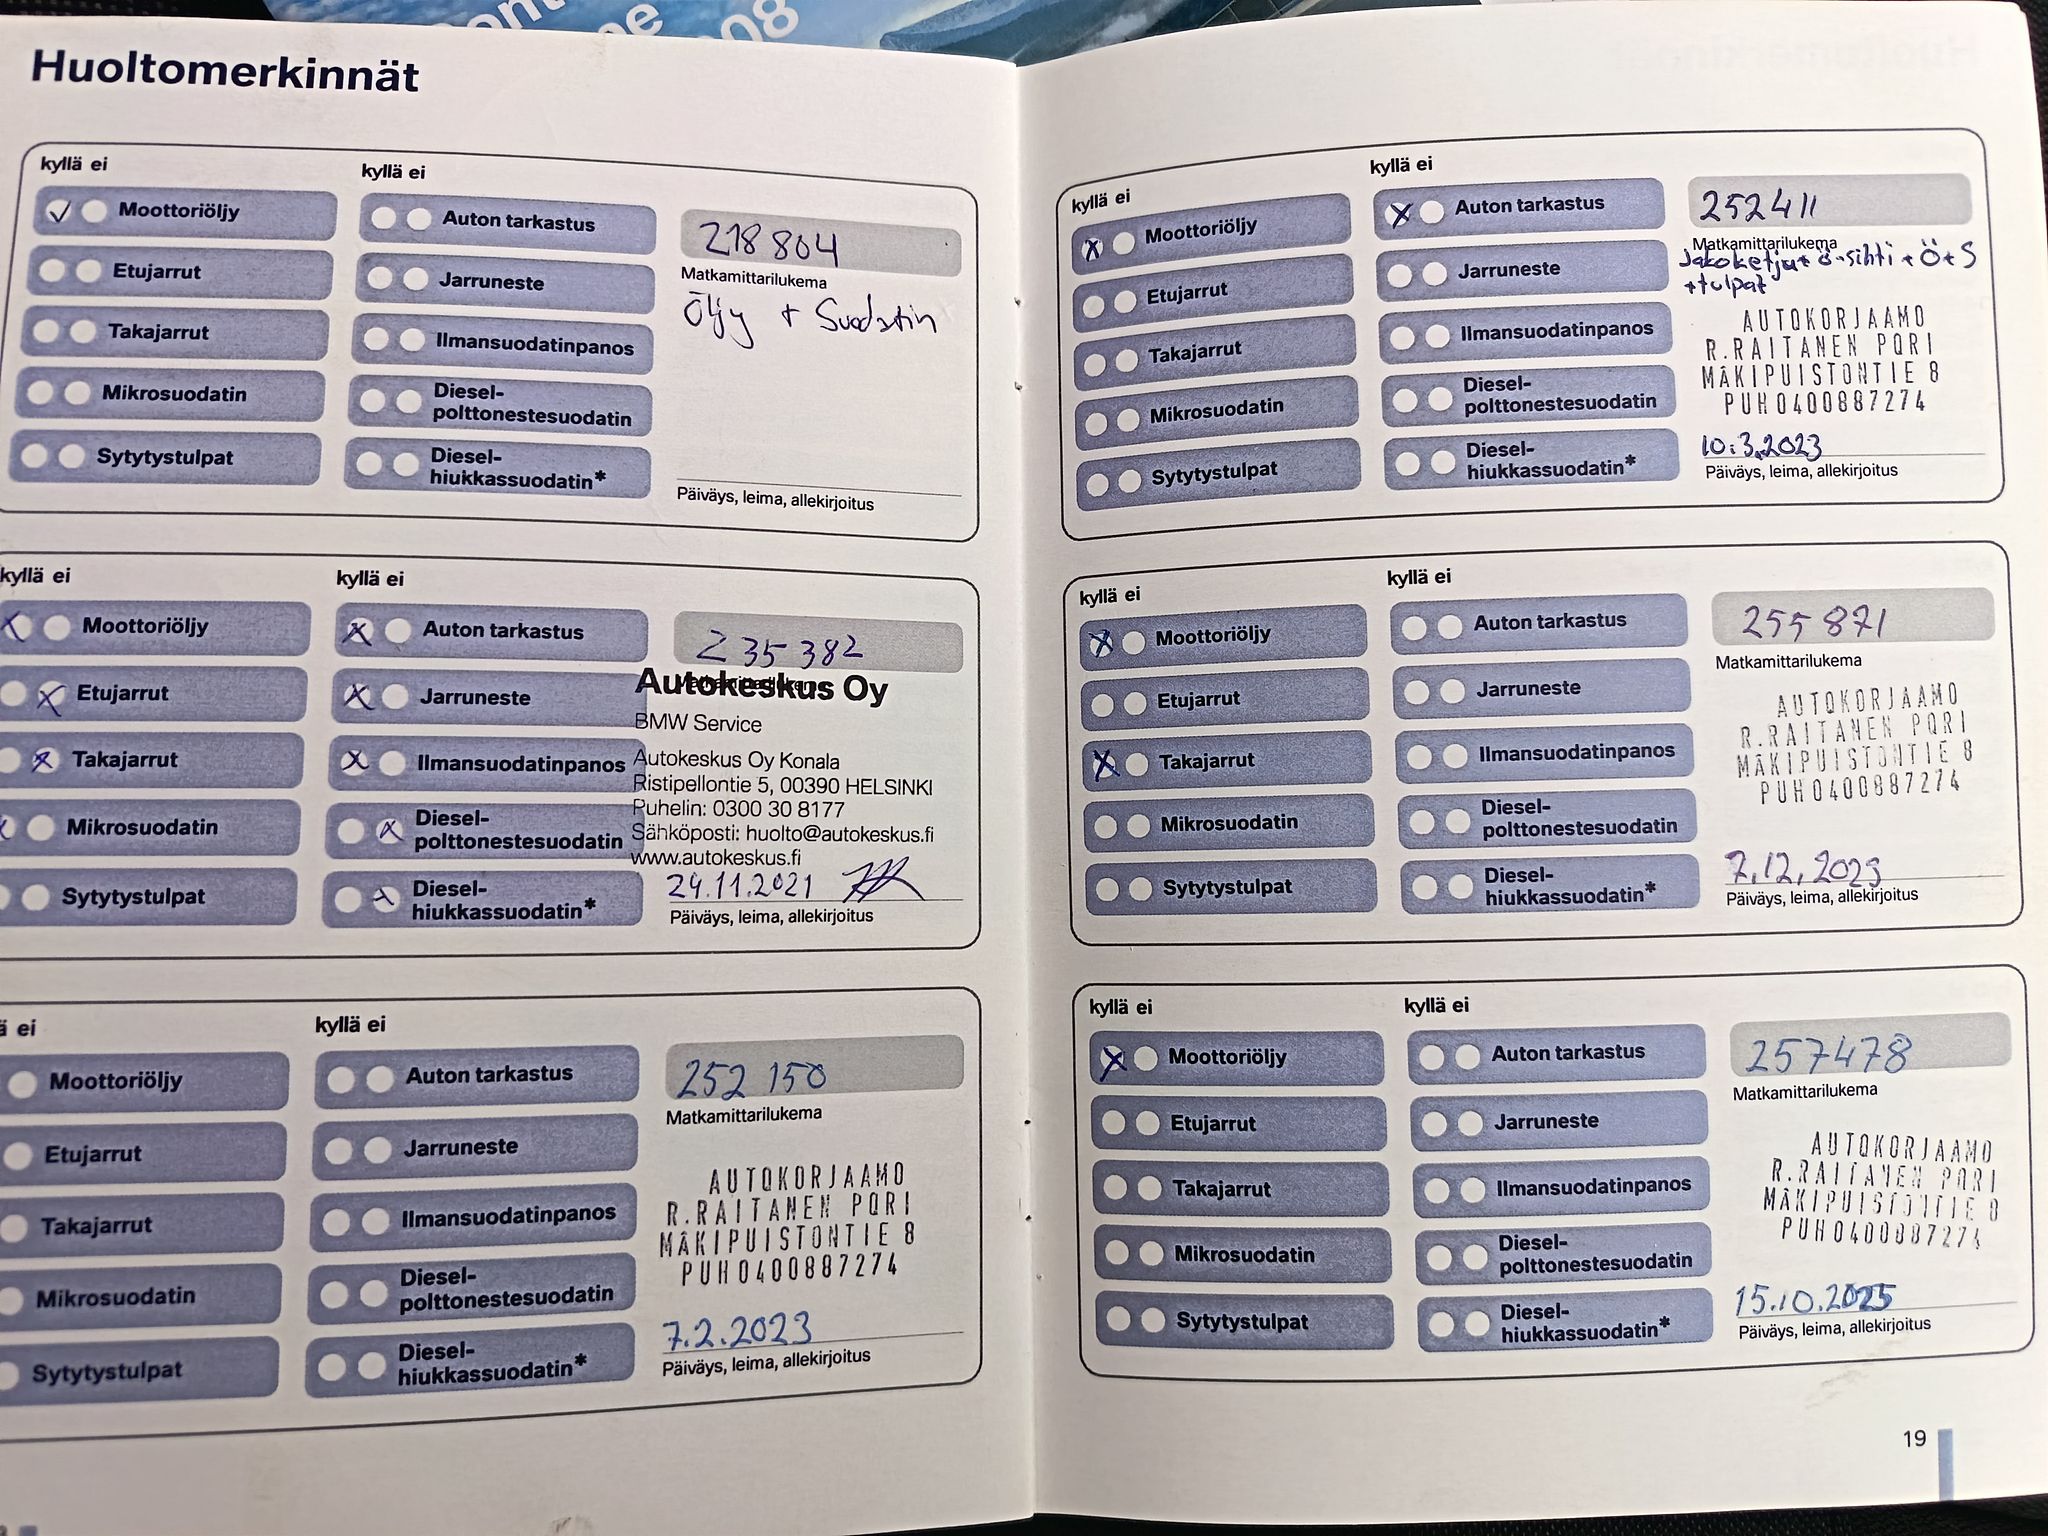 Huoltomerkinnät
kyllä ei
kyllä ei
Moottoriöljy
Auton tarkastus
218 804
Etujarrut
Jarruneste
Matkamittarilukema
Öljy + Suodatin
Takajarrut
Ilmansuodatinpanos
Mikrosuodatin
Diesel-
polttonestesuodatin
Sytytystulpat
Diesel-
hiukkassuodatin*
Päiväys, leima, allekirjoitus
kyllä ei
kyllä ei
Moottoriöljy
Auton tarkastus
235 382
Matkamittarilukema
Autokeskus Oy
Etujarrut
Jarruneste
BMW Service
Takajarrut
Ilmansuodatinpanos
Autokeskus Oy Konala
Ristipellontie 5, 00390 HELSINKI
Puhelin: 0300 30 8177
Mikrosuodatin
Diesel-
polttonestesuodatin
Sähköposti: huolto@autokeskus.fi
www.autokeskus.fi
Sytytystulpat
Diesel-
hiukkassuodatin*
29.11.2021
Päiväys, leima, allekirjoitus
ä ei
kyllä ei
Moottoriöljy
Auton tarkastus
252 150
Matkamittarilukema
Etujarrut
Jarruneste
Takajarrut
Ilmansuodatinpanos
AUTOKORJAAMO
R.RAITANEN PORI
MÄKIPUISTONTIE 8
PUH0400887274
Mikrosuodatin
Diesel-
polttonestesuodatin
Sytytystulpat
Diesel-
hiukkassuodatin*
7.2.2023
Päiväys, leima, allekirjoitus
kyllä ei
kyllä ei
Moottoriöljy
Auton tarkastus
252411
Matkamittarilukema
Jakoketju + ö-sihti + Ö+S
+ tulpat
Etujarrut
Jarruneste
Takajarrut
Ilmansuodatinpanos
AUTOKORJAAMO
R.RAITANEN PORI
MÄKIPUISTONTIE 8
PUH0400887274
Mikrosuodatin
Diesel-
polttonestesuodatin
Sytytystulpat
Diesel-
hiukkassuodatin*
10.3.2023
Päiväys, leima, allekirjoitus
kyllä ei
kyllä ei
Moottoriöljy
Auton tarkastus
255 871
Matkamittarilukema
Etujarrut
Jarruneste
Takajarrut
Ilmansuodatinpanos
AUTOKORJAAMO
R.RAITANEN PORI
MÄKIPUISTONTIE 8
PUH0400887274
Mikrosuodatin
Diesel-
polttonestesuodatin
Sytytystulpat
Diesel-
hiukkassuodatin*
7.12.2023
Päiväys, leima, allekirjoitus
kyllä ei
kyllä ei
Moottoriöljy
Auton tarkastus
257478
Matkamittarilukema
Etujarrut
Jarruneste
Takajarrut
Ilmansuodatinpanos
AUTOKORJAAMO
R.RAITANEN PORI
MÄKIPUISTONTIE 8
PUH0400887274
Mikrosuodatin
Diesel-
polttonestesuodatin
Sytytystulpat
Diesel-
hiukkassuodatin*
15.10.2025
Päiväys, leima, allekirjoitus
19